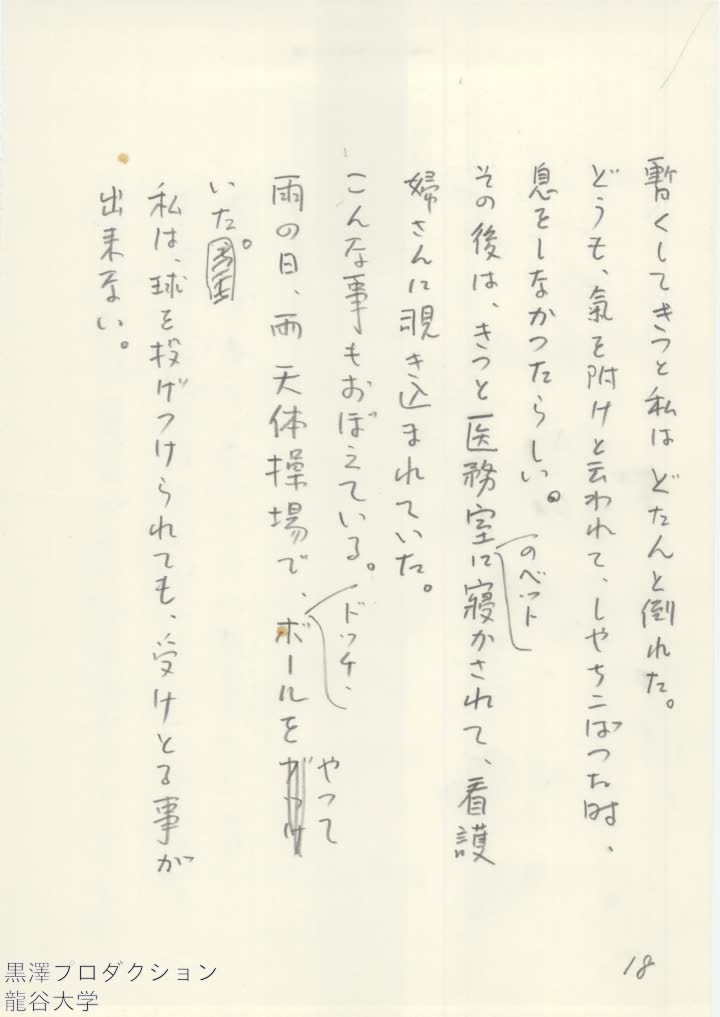 暫くしてきつと私はどたんと倒れた。
どうも、氣を附けと云われて、しやちこばつた時、
息をしなかつたらしい。
その後は、きつと医務室に寝かされて、看護
のベット
婦さんに覗き込まれていた。
こんな事もおぼえている。
雨の日、雨天体操場で、ボールを
ドッヂ、
やつて
いた。
私は、球を投げつけられても、受けとる事が
出来ない。
18
黒澤プロダクション
龍谷大学